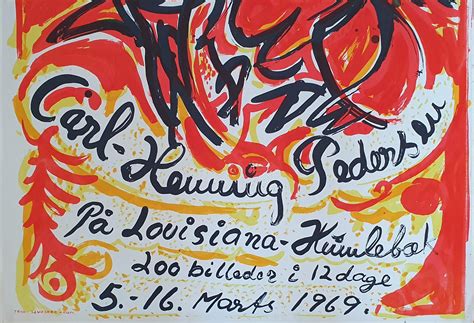 Carl-Henning Pedersen
På Louisiana-Humlebæk
200 billeder i 12 dage
5.-16. Marts 1969.